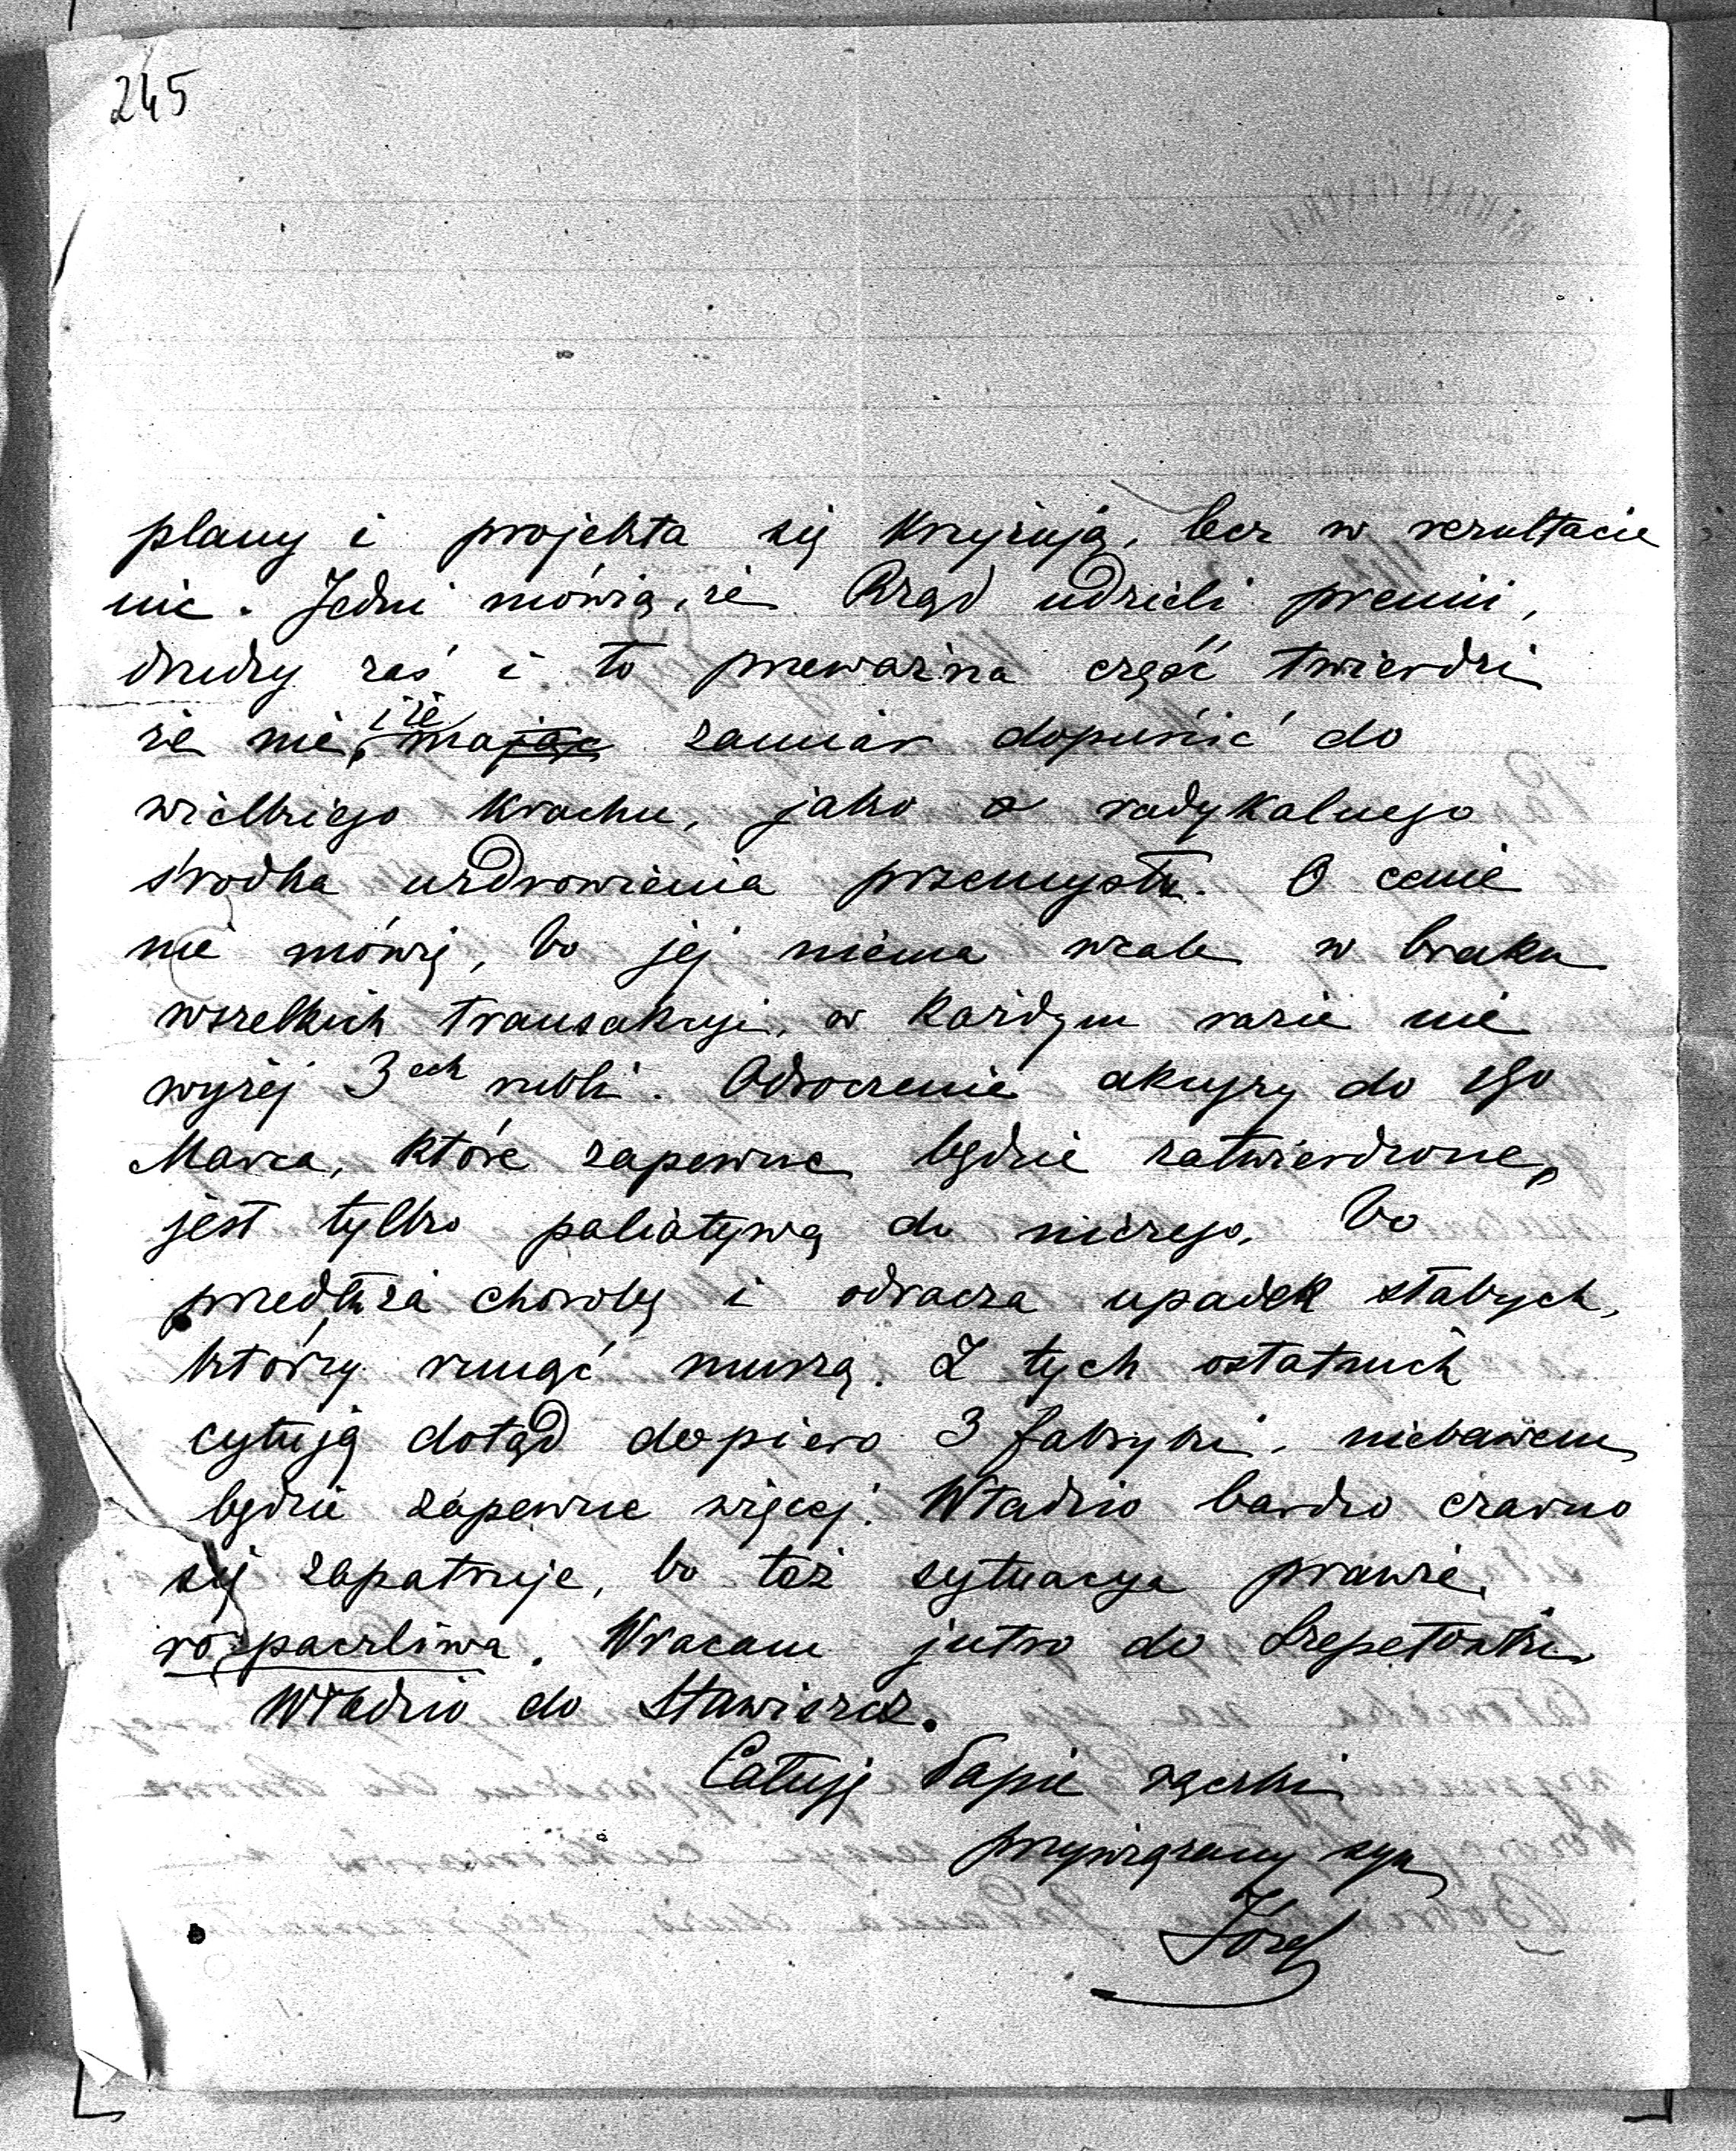 245
plany i projekta się krzyżują, lecz w rezultacie
nic. Jedni mówią, że Rząd udzieli premii,
drudzy zaś i to przeważna część twierdzi
że nie, i że mają zamiar dopuścić do
wielkiego krachu, jako radykalnego
środka uzdrowienia przemysłu. O cenie
nie mówię, bo jej niema wcale w braku
wszelkich transakcyi, w każdym razie nie
wyżej 3ech rubli. Odroczenie akcyzy do 1go
Marca, które zapewne będzie zatwierdzone,
jest tylko paliatywą do niczego, bo
przedłuża chorobę i odracza upadek słabych,
którzy runąć muszą. Z tych ostatnich
cytują dotąd dopiero 3 fabryki, niebawem
będzie zapewne więcej. Władzio bardzo czarno
się zapatruje, bo też sytuacya prawie
rozpaczliwa. Wracam jutro do Szepetówki
Władzio do Stawiszcz.
Całuję Papie rączki
przywiązany syn
Józef